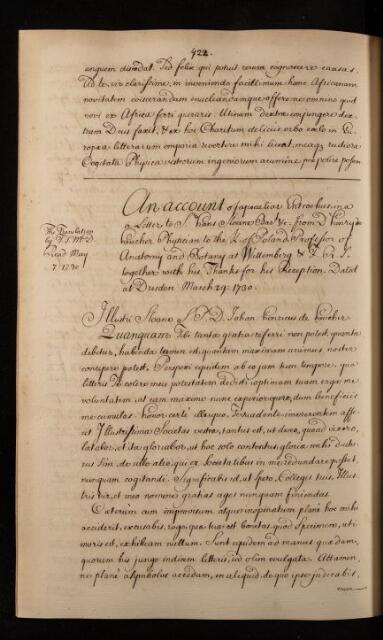 422.
unquem dismdat. Sed felix qui potuit rerum cognoscere causas.
Ad te, vir clarissime, in inveniendo facillimum hanc Africanam
novitatem eviscerandam enucleandamque offero ne omnino quod
novi ex Africa feris queraris. Utinam dextra conjungere dex-
tram Deus faxit, & ex hoc Charitum deliciis orbo exolo in Eu-
ropæa litterarum emporia revertere mihi liceat, meaq rudiora
Cogitata Physica vestrorum ingeniorum acumine præpolire possem
An account of a peculiar Entrochus, in a
a Letter to Sr. Hans Sloane Bart. &c. from D. Henry de
Heucher Physician to the K. of Poland, Professor of
Anatomy and Botany at Wittemberg & F. R. S.
together with his Thanks for his Reception. Dated
at Dresden March 24. 1730.
The Translation
by T. S. M. D.
read May
7. 1730.
Illustri Sloaneo S. P. D. Johan Henricus de Heucher
Quanquam Tibi tantæ gratiæ referri non potest, quanta
debitur, habenda tamen est, quantam maximam animus noster
concipere potest. Perspexi equidem ab eo jam tum tempore, quo
litteris Te colere meæ potestatem dedisti optimam tuam erga me
voluntatem, at eam maximo nunc experior opere, dum beneficiis
me cumulas. honor certe ille quo, Te suadente immerentem affe-
cit Illustrissima Societas vestra, tantus est, ut deeo, quoad vixero,
lætabor, et ita gloriabor, ut hoc solo contentus, gloriæ mihi duc-
tus sim, de ullo alio, qui ex Societatibus in me redundare posset,
nunquam cogitandi. Significabis id, ut spero, Collegis tuis, Illus-
tris vir, et meo nomine gratias ages nunquam finiendas.
Cæterum cum improvisum atque inopinatum plane hoc mihi
acciderit, excusabis, rogo, pro tua est bonitas, quod Specimen, uti
moris est, exhibeam nullum. Sunt equidem ad manus quædam,
quorum his jungo indicem litteris, ut olim evulgata. Attamen,
ne plane asymbolus accedam, en aliquid, de quo ipse judicabis,